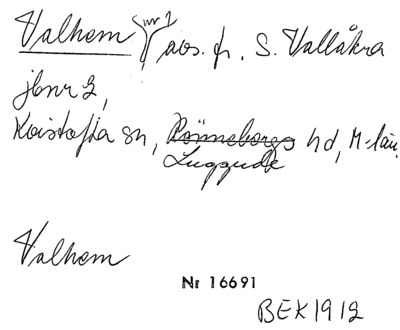 Valhem nr 1 avs. fr. S. Vallåkra
jbnr 2,
Kvistofta sn, Rönnebergs hd, M-län.
Luggude
Valhem
Nr 16691
BEK1912